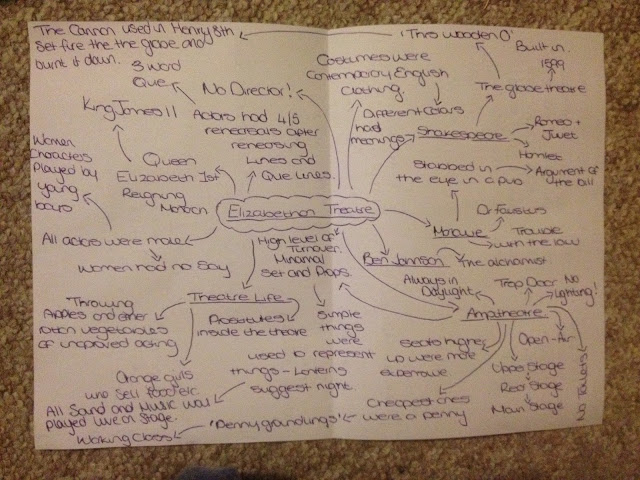 The Cannon used in Henry 8th
Set fire the the globe and
burnt it down.
'This wooden O'
Built in
1599
The globe theatre
3 word
Que
No Director!
Costumes were
Contemporary English
Clothing.
Different Colors
had
meanings
Shakespeare
Romeo +
Juliet
Hamlet
King James II
Actors had 4/5
rehearsals after
rehearsing
Lines and
Que Lines.
Women
Characters
Played by
young
boys
Queen
Elizabeth Ist
Reigning
Monarch
Stabbed in
the eye in a pub
Argument of
the Bill
Elizabethan Theatre
Dr Faustus
Marlowe
Trouble
with the law
All actors were male
Women had no Say
High level of
Turnover.
Minamal
Set and Props.
Ben Johnson
The alchamist
Always in
Daylight
Trap Door
No
Lighting!
Theatre Life
Ampatheatre
Throwing
Apples and other
rotton vegetables
if unproved acting
Prostitutes
inside the theatre
Simple
things
were
used to represent
things - Lanterns
suggest night.
Seats higher
up were more
expensive
Open-Air
Upper Stage
Rear Stage
Main Stage
No Toilets
Orange girls
who sell food etc.
All Sound and Music was
played live on Stage.
Cheapest ones
were a penny
'Penny groundlings'
Working Class